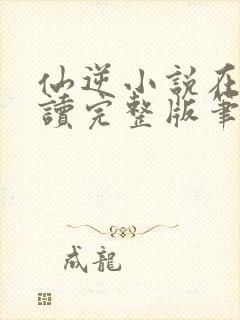 仙逆小說在
讀完整版筆
成龍